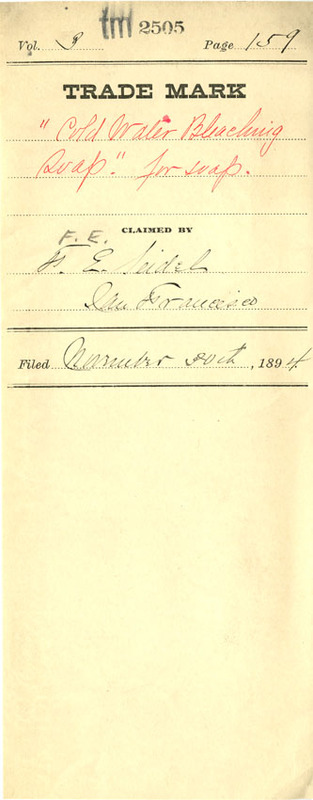 tm 2505
Vol. 3 Page 159
TRADE MARK
"Cold Water Bleaching
Soap." for soap.
CLAIMED BY
F. E.
F. E. Seidel
San Francisco
Filed November 30th, 1894